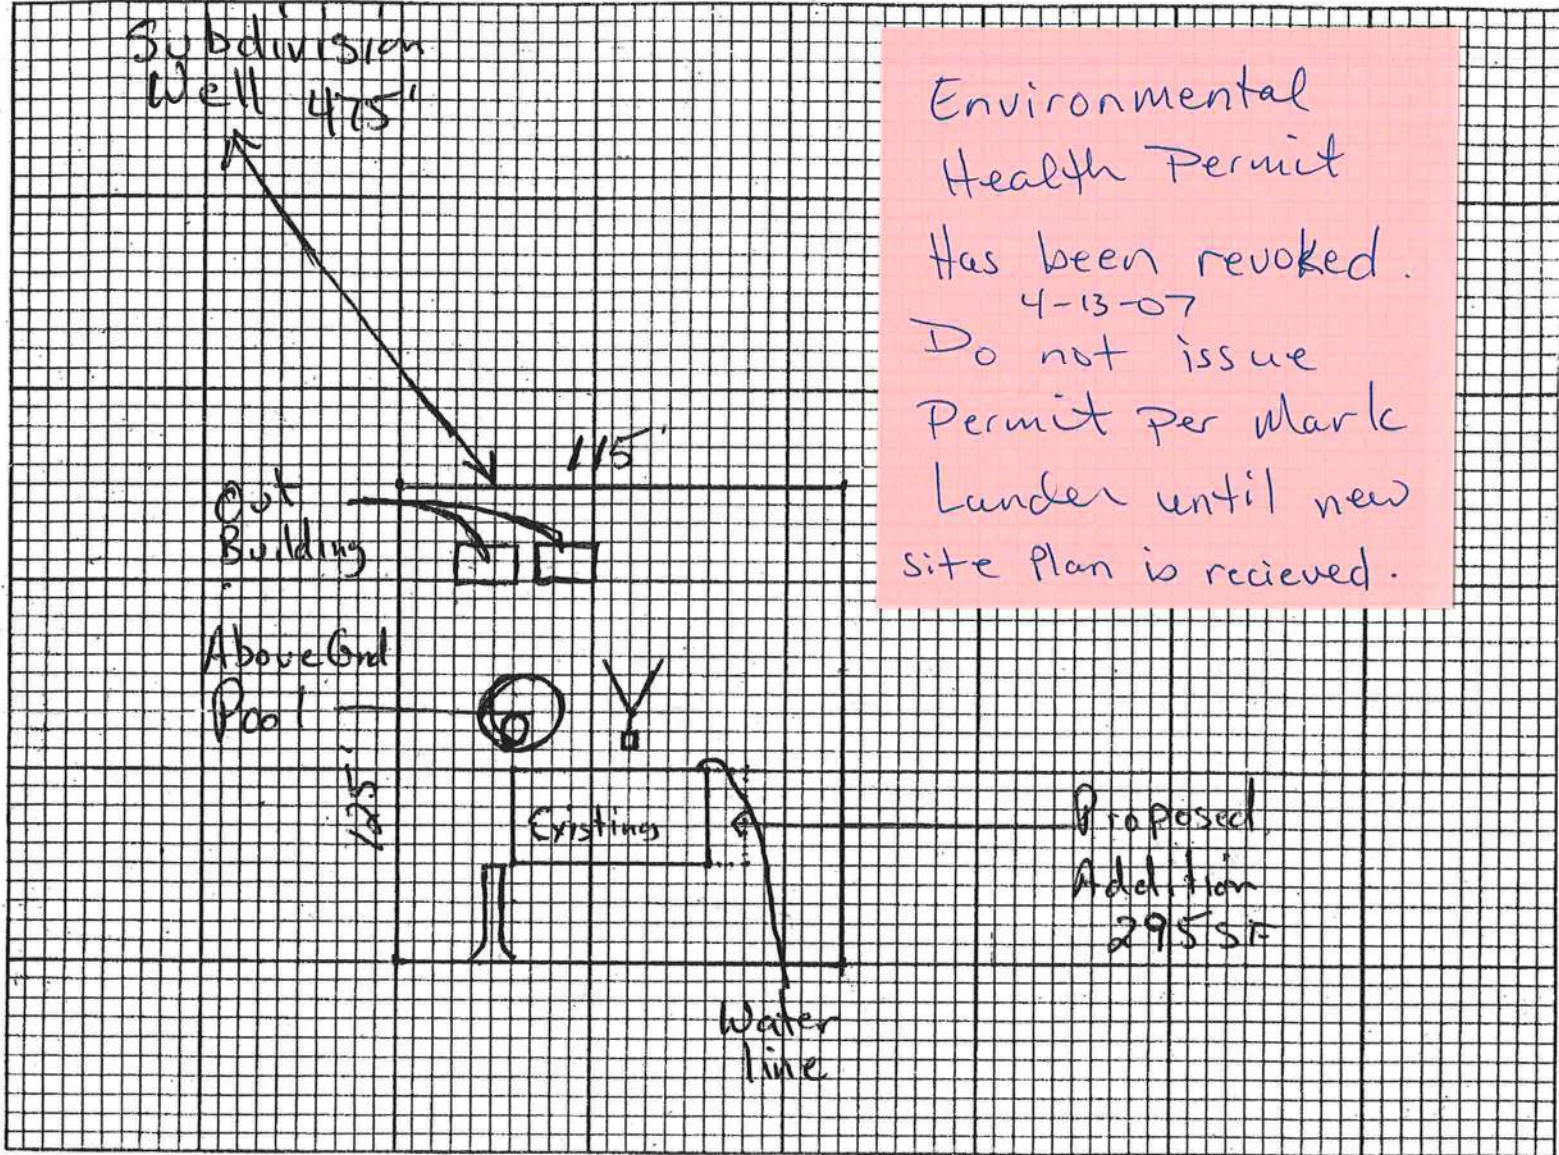 Subdivision
Well 475'
Environmental
Health Permit
Has been revoked.
4-13-07
Do not issue
Permit per Mark
Lander until new
site Plan is recieved.
115'
Out
Building
Above Grd
Pool
125'
Existing
Proposed
Addition
295 SF
Water
line